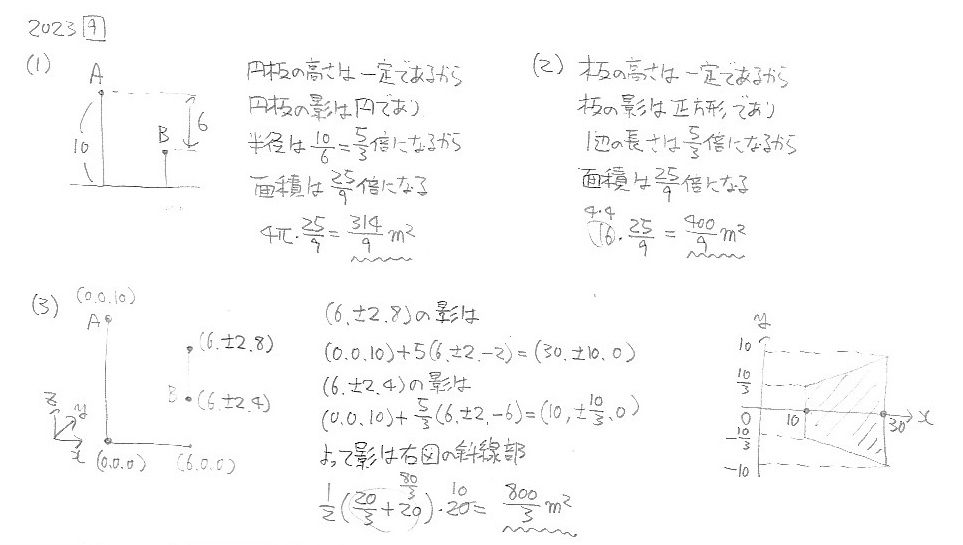 2023 9
(1)
A
10
6
B
円板の高さは一定であるから
円板の影は円であり
半径は 10/6 = 5/3 倍になるから
面積は 25/9 倍になる
4π・25/9 = 314/9 m²
(2)
板の高さは一定であるから
板の影は正方形であり
1辺の長さは 5/3 倍になるから
面積は 25/9 倍になる
4・4
16・25/9 = 400/9 m²
(3)
(0.0.10)
A
(6.±2.8)
B (6.±2.4)
z
y
x
(0.0.0)
(6.0.0)
(6.±2.8)の影は
(0.0.10)+5(6.±2.-2)=(30.±10.0)
(6.±2.4)の影は
(0.0.10)+5/3(6.±2.-6)=(10.±10/3.0)
よって影は右図の斜線部
80/3 10
1/2(20/3+20)・20= 800/3 m²
y
10
10/3
0
-10/3
-10
10
30
x